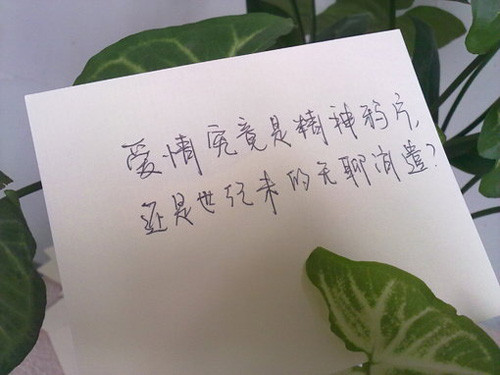 爱情究竟是精神鸦片，
还是世纪末的无聊消遣？